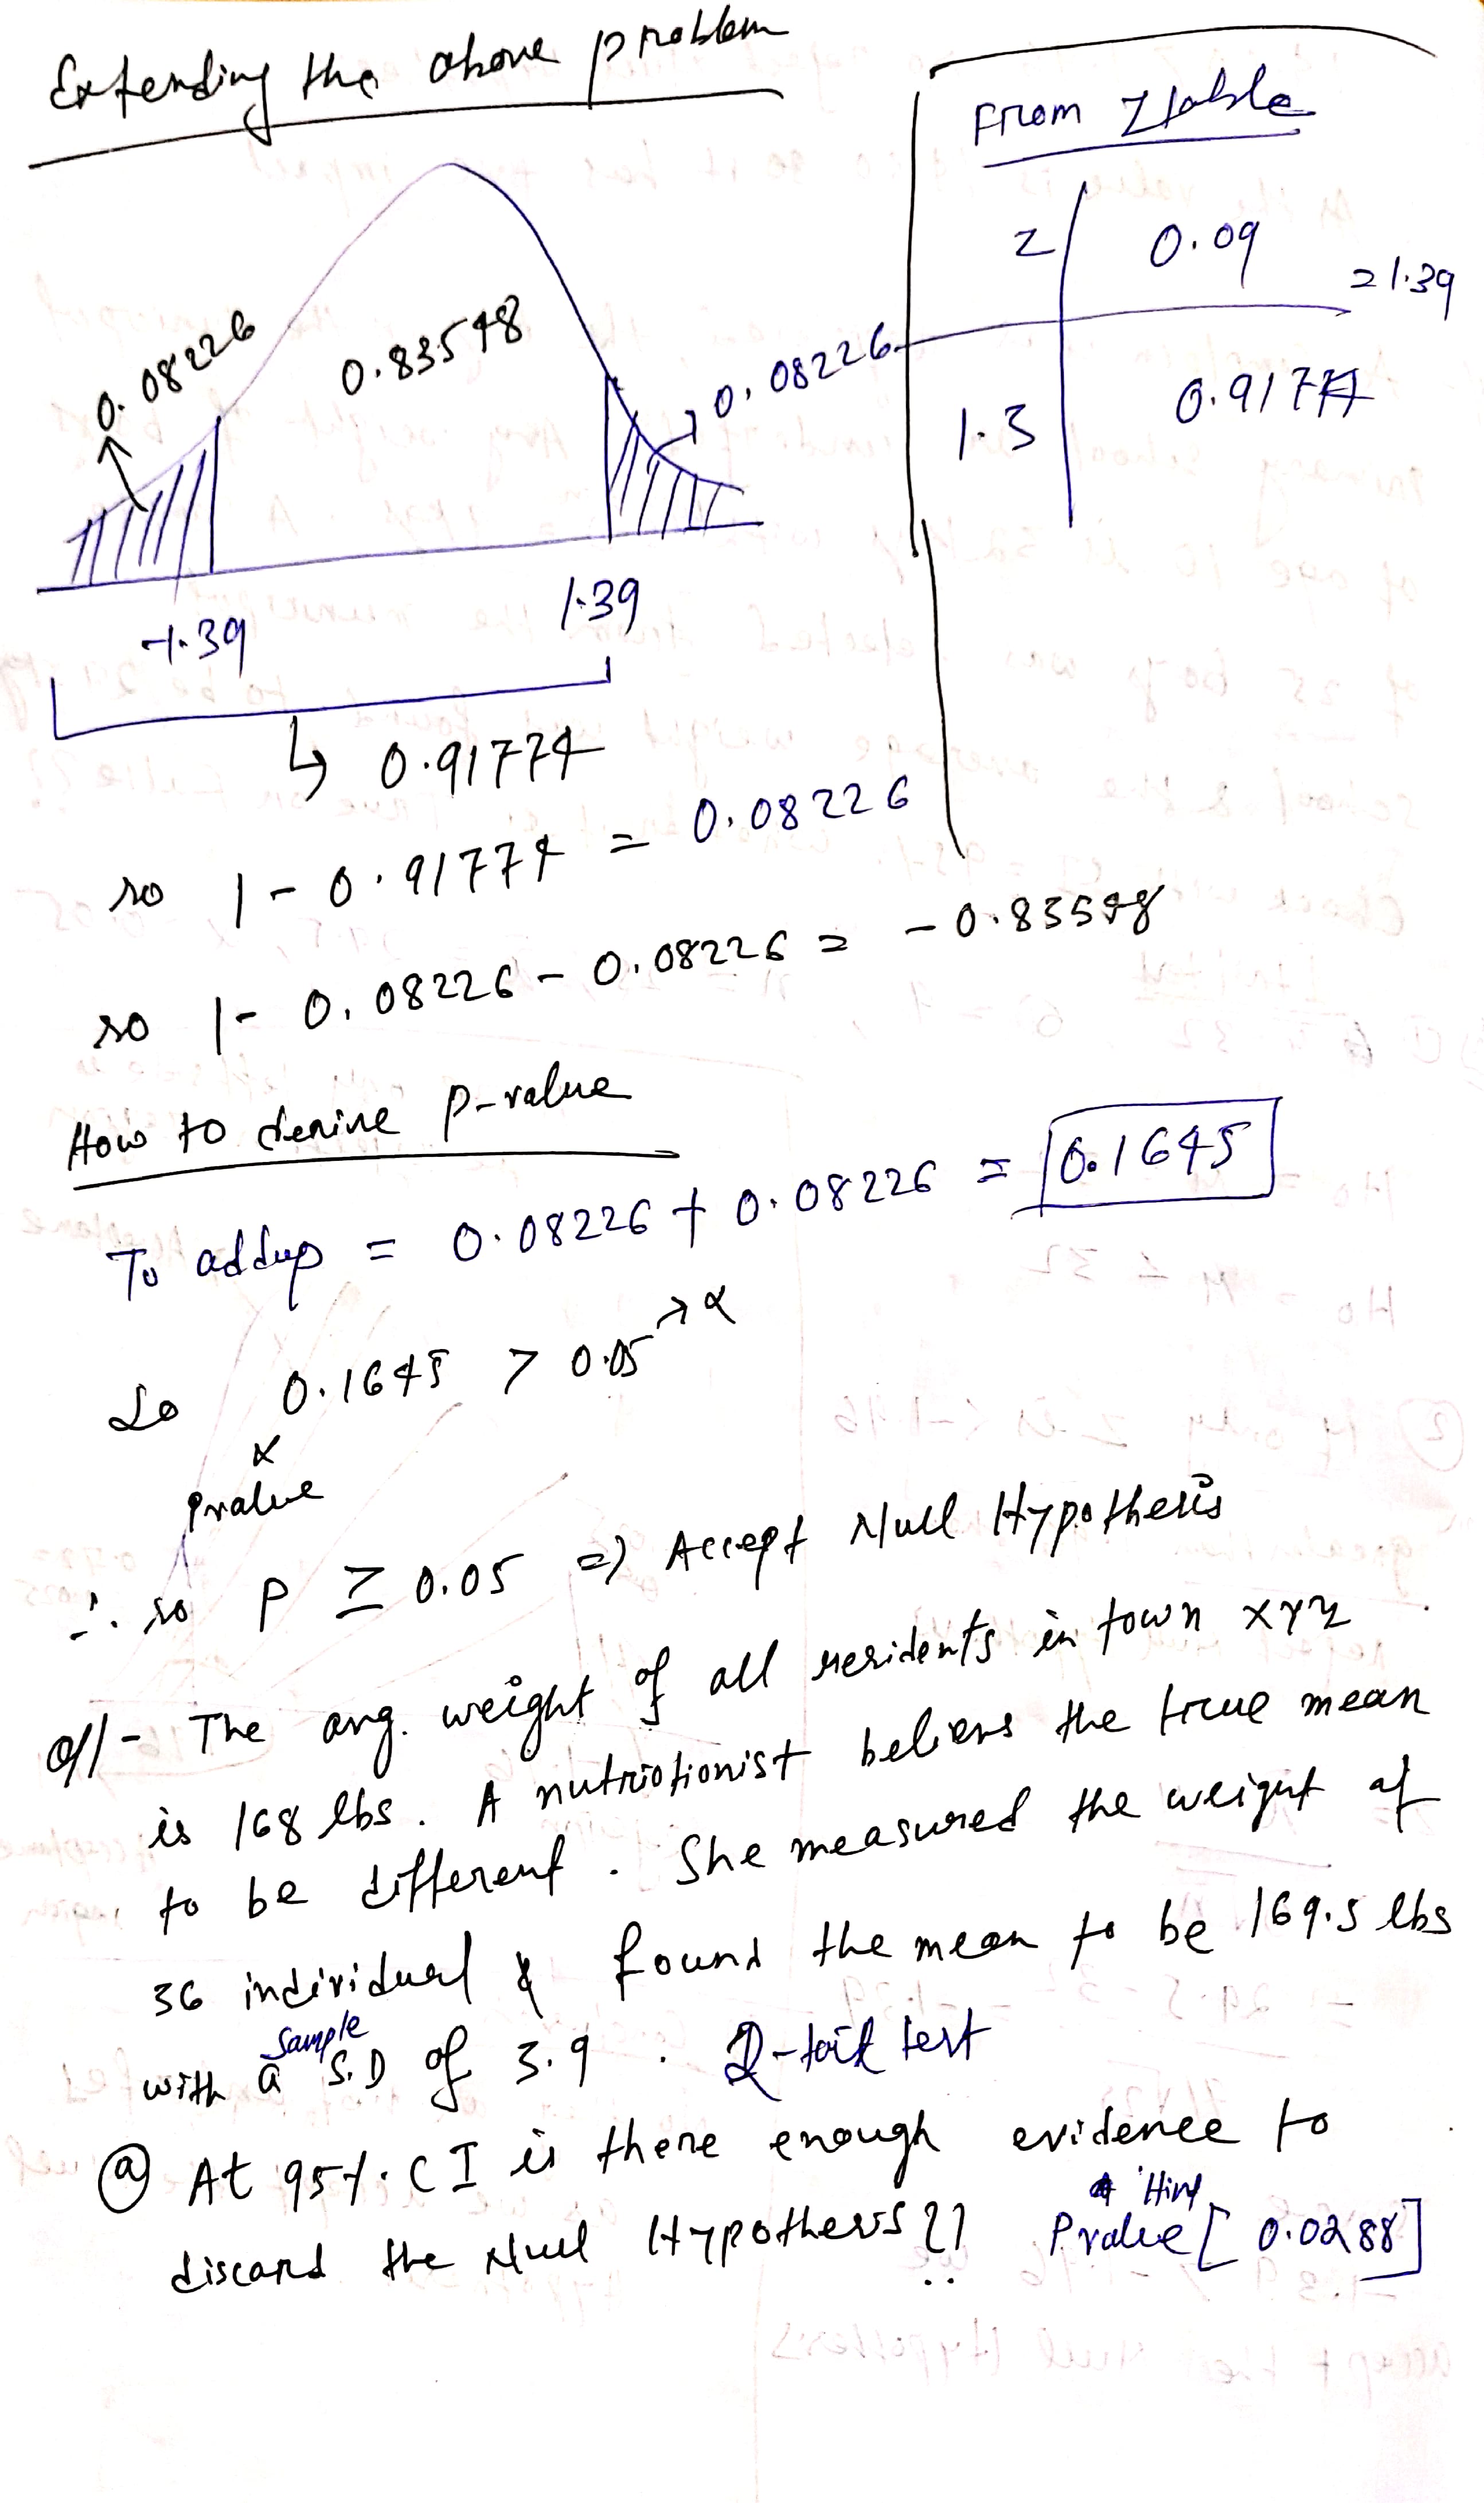 Extending the above problem
From Z table
z 0.09 = 1.39
1.3 0.91774
0.08226
0.83548
0.08226
-1.39
1.39
↳ 0.91774
so 1 - 0.91774 = 0.08226
so 1 - 0.08226 - 0.08226 = - 0.83548
How to derive P-value
To addup = 0.08226 + 0.08226 = 0.1645
So 0.1645 > 0.05 → α
Pvalue
∴ so P ≥ 0.05 => Accept Null Hypothesis
Q/- The avg. weight of all residents in town XYZ
is 168 lbs. A nutriotionist believs the true mean
to be different. She measured the weight of
36 individual & found the mean to be 169.5 lbs
with a sample S.D of 3.9. 2-tail test
(a) At 95%. CI is there enough evidence to
Hint
discard the Null Hypothesis?? Pvalue [0.0288]